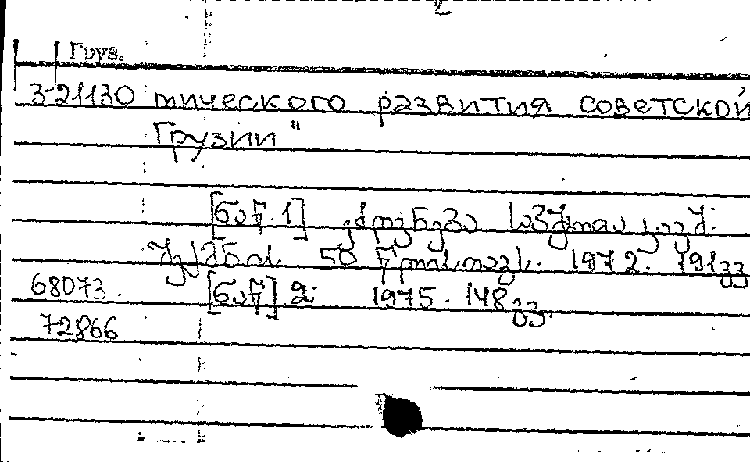 2
Груз.
3-21130 тического развития советской
Грузии"
[ნაწ. 1] ეძღვნება საბჭოთა კავშ.
შექმნის 50 წლისთავს. 1972. 191გვ
68073 [ნაწ] 2. 1975. 148გვ.
72866